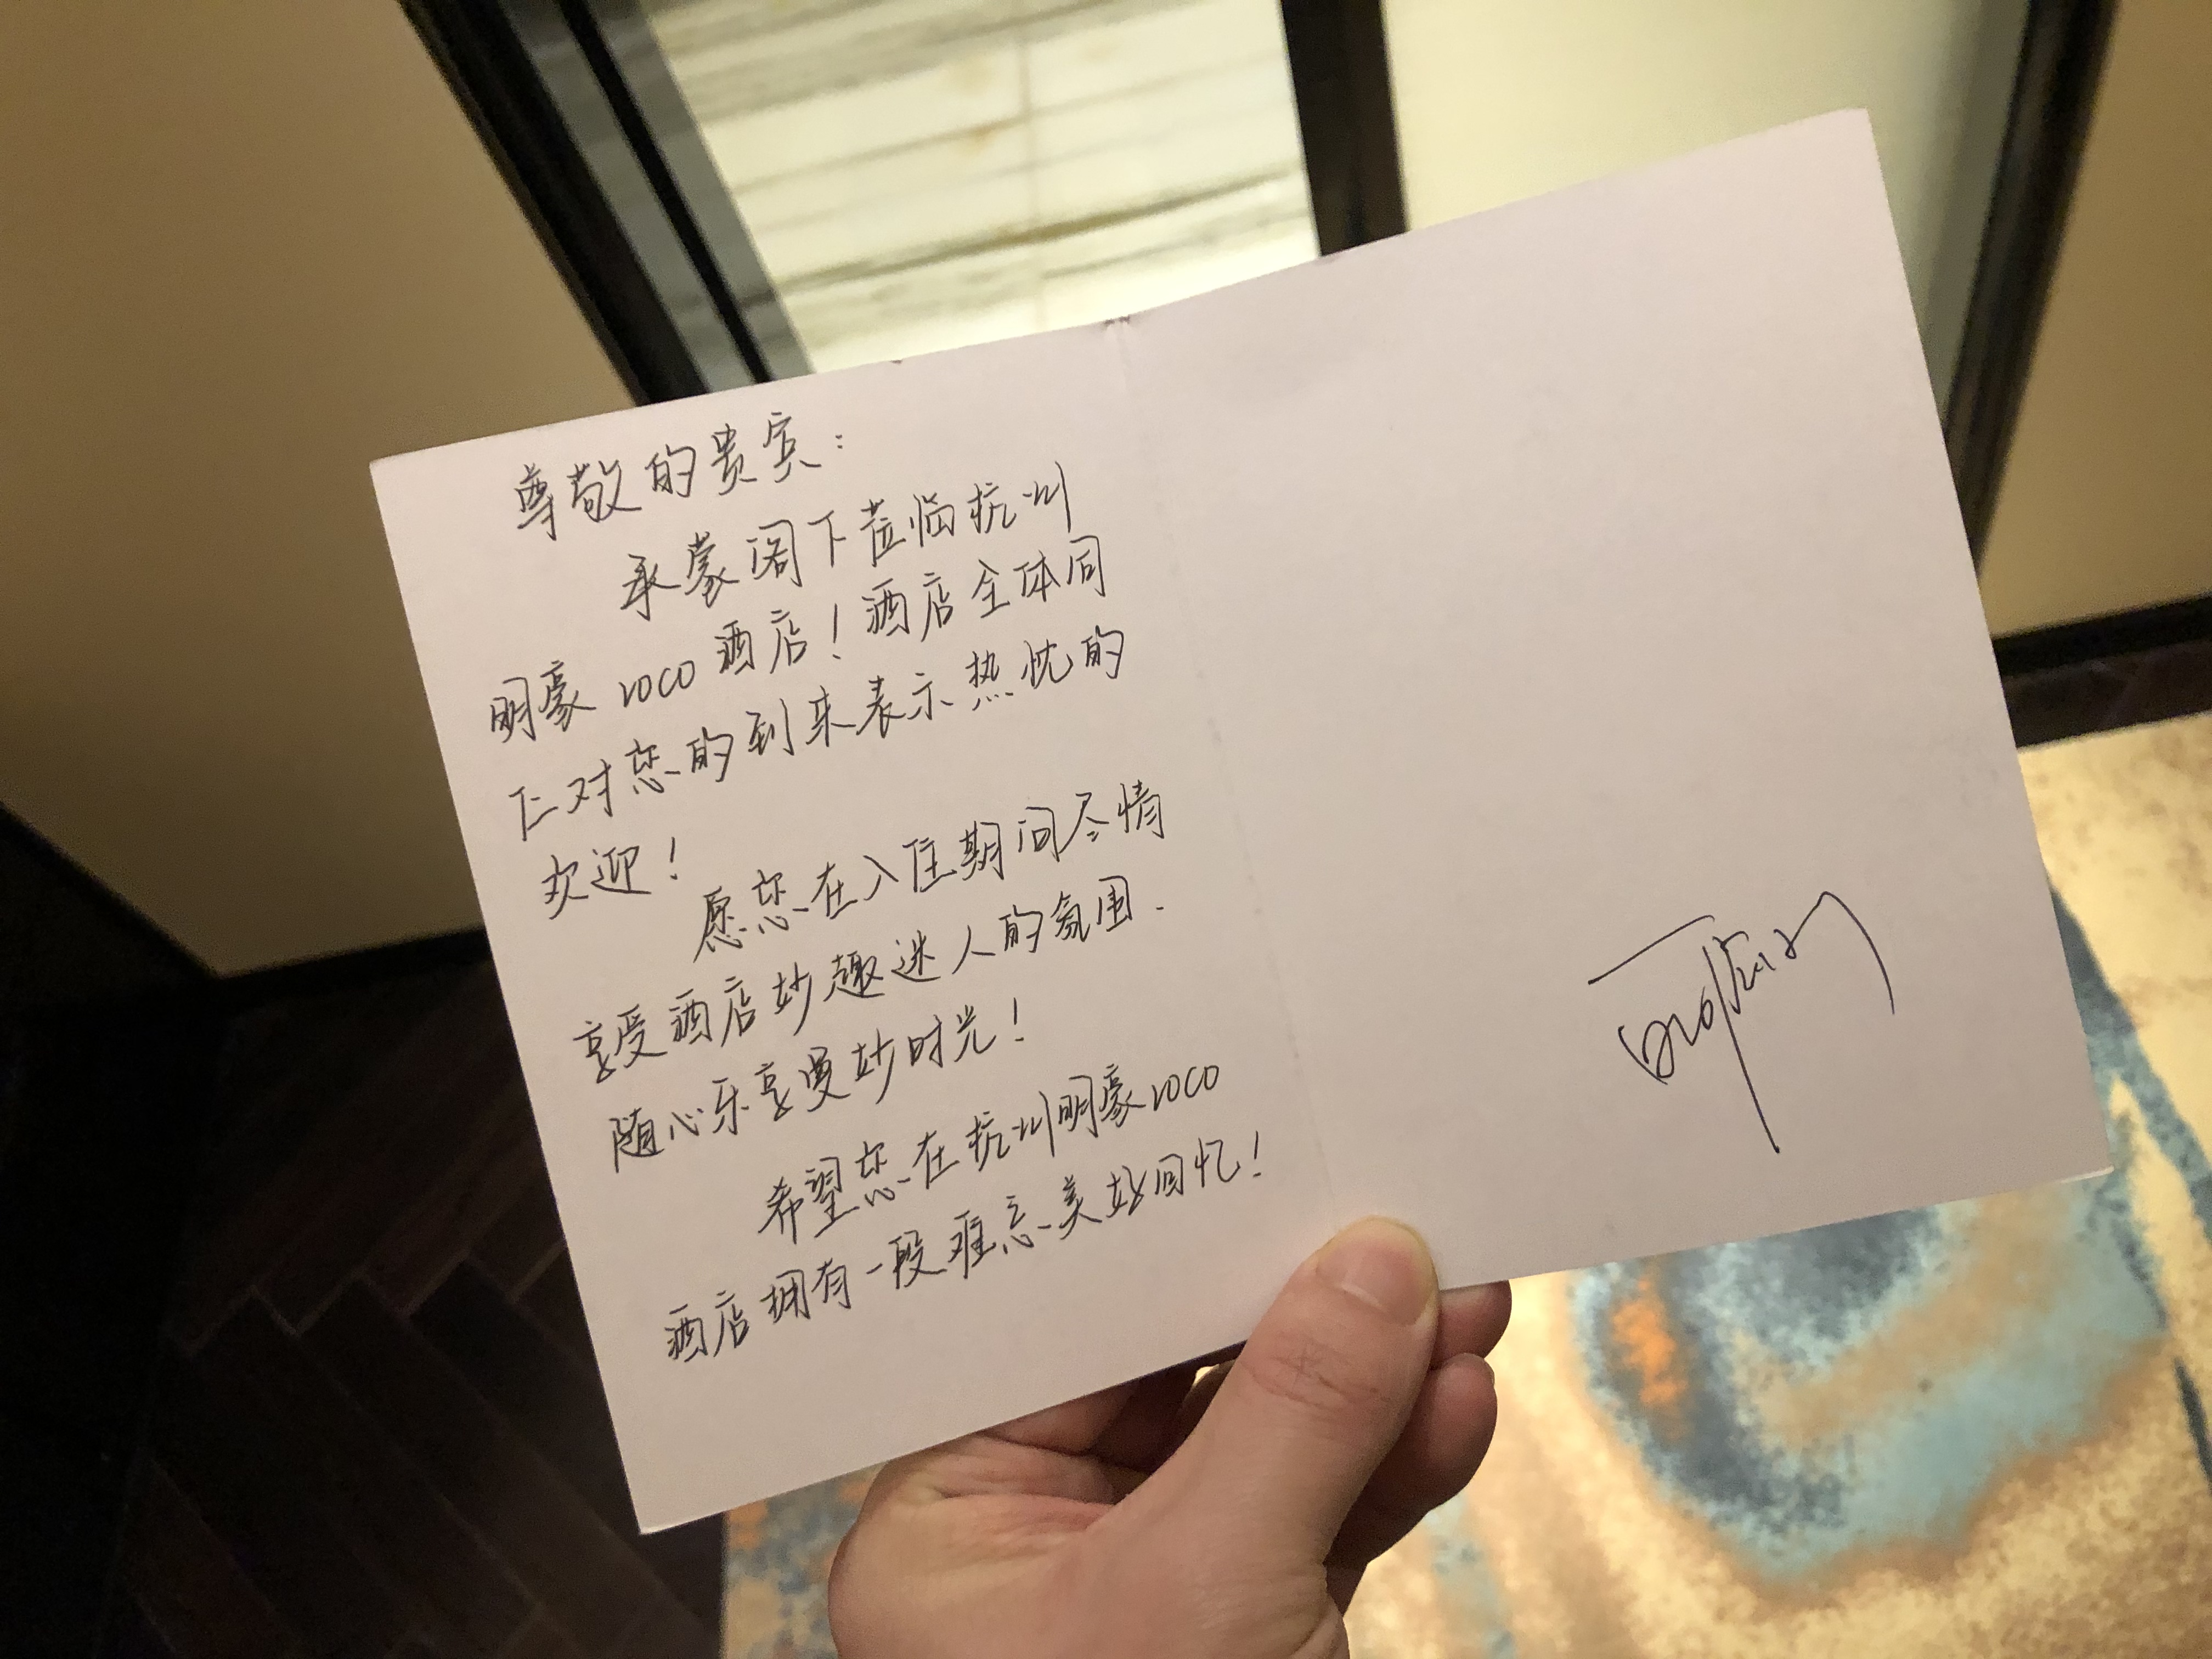 尊敬的贵宾：
承蒙阁下莅临杭州
明豪voco酒店！酒店全体同
仁对您的到来表示热忱的
欢迎！
愿您在入住期间尽情
享受酒店妙趣迷人的氛围．
随心乐享曼妙时光！
希望您在杭州明豪voco
酒店拥有一段难忘美好回忆！